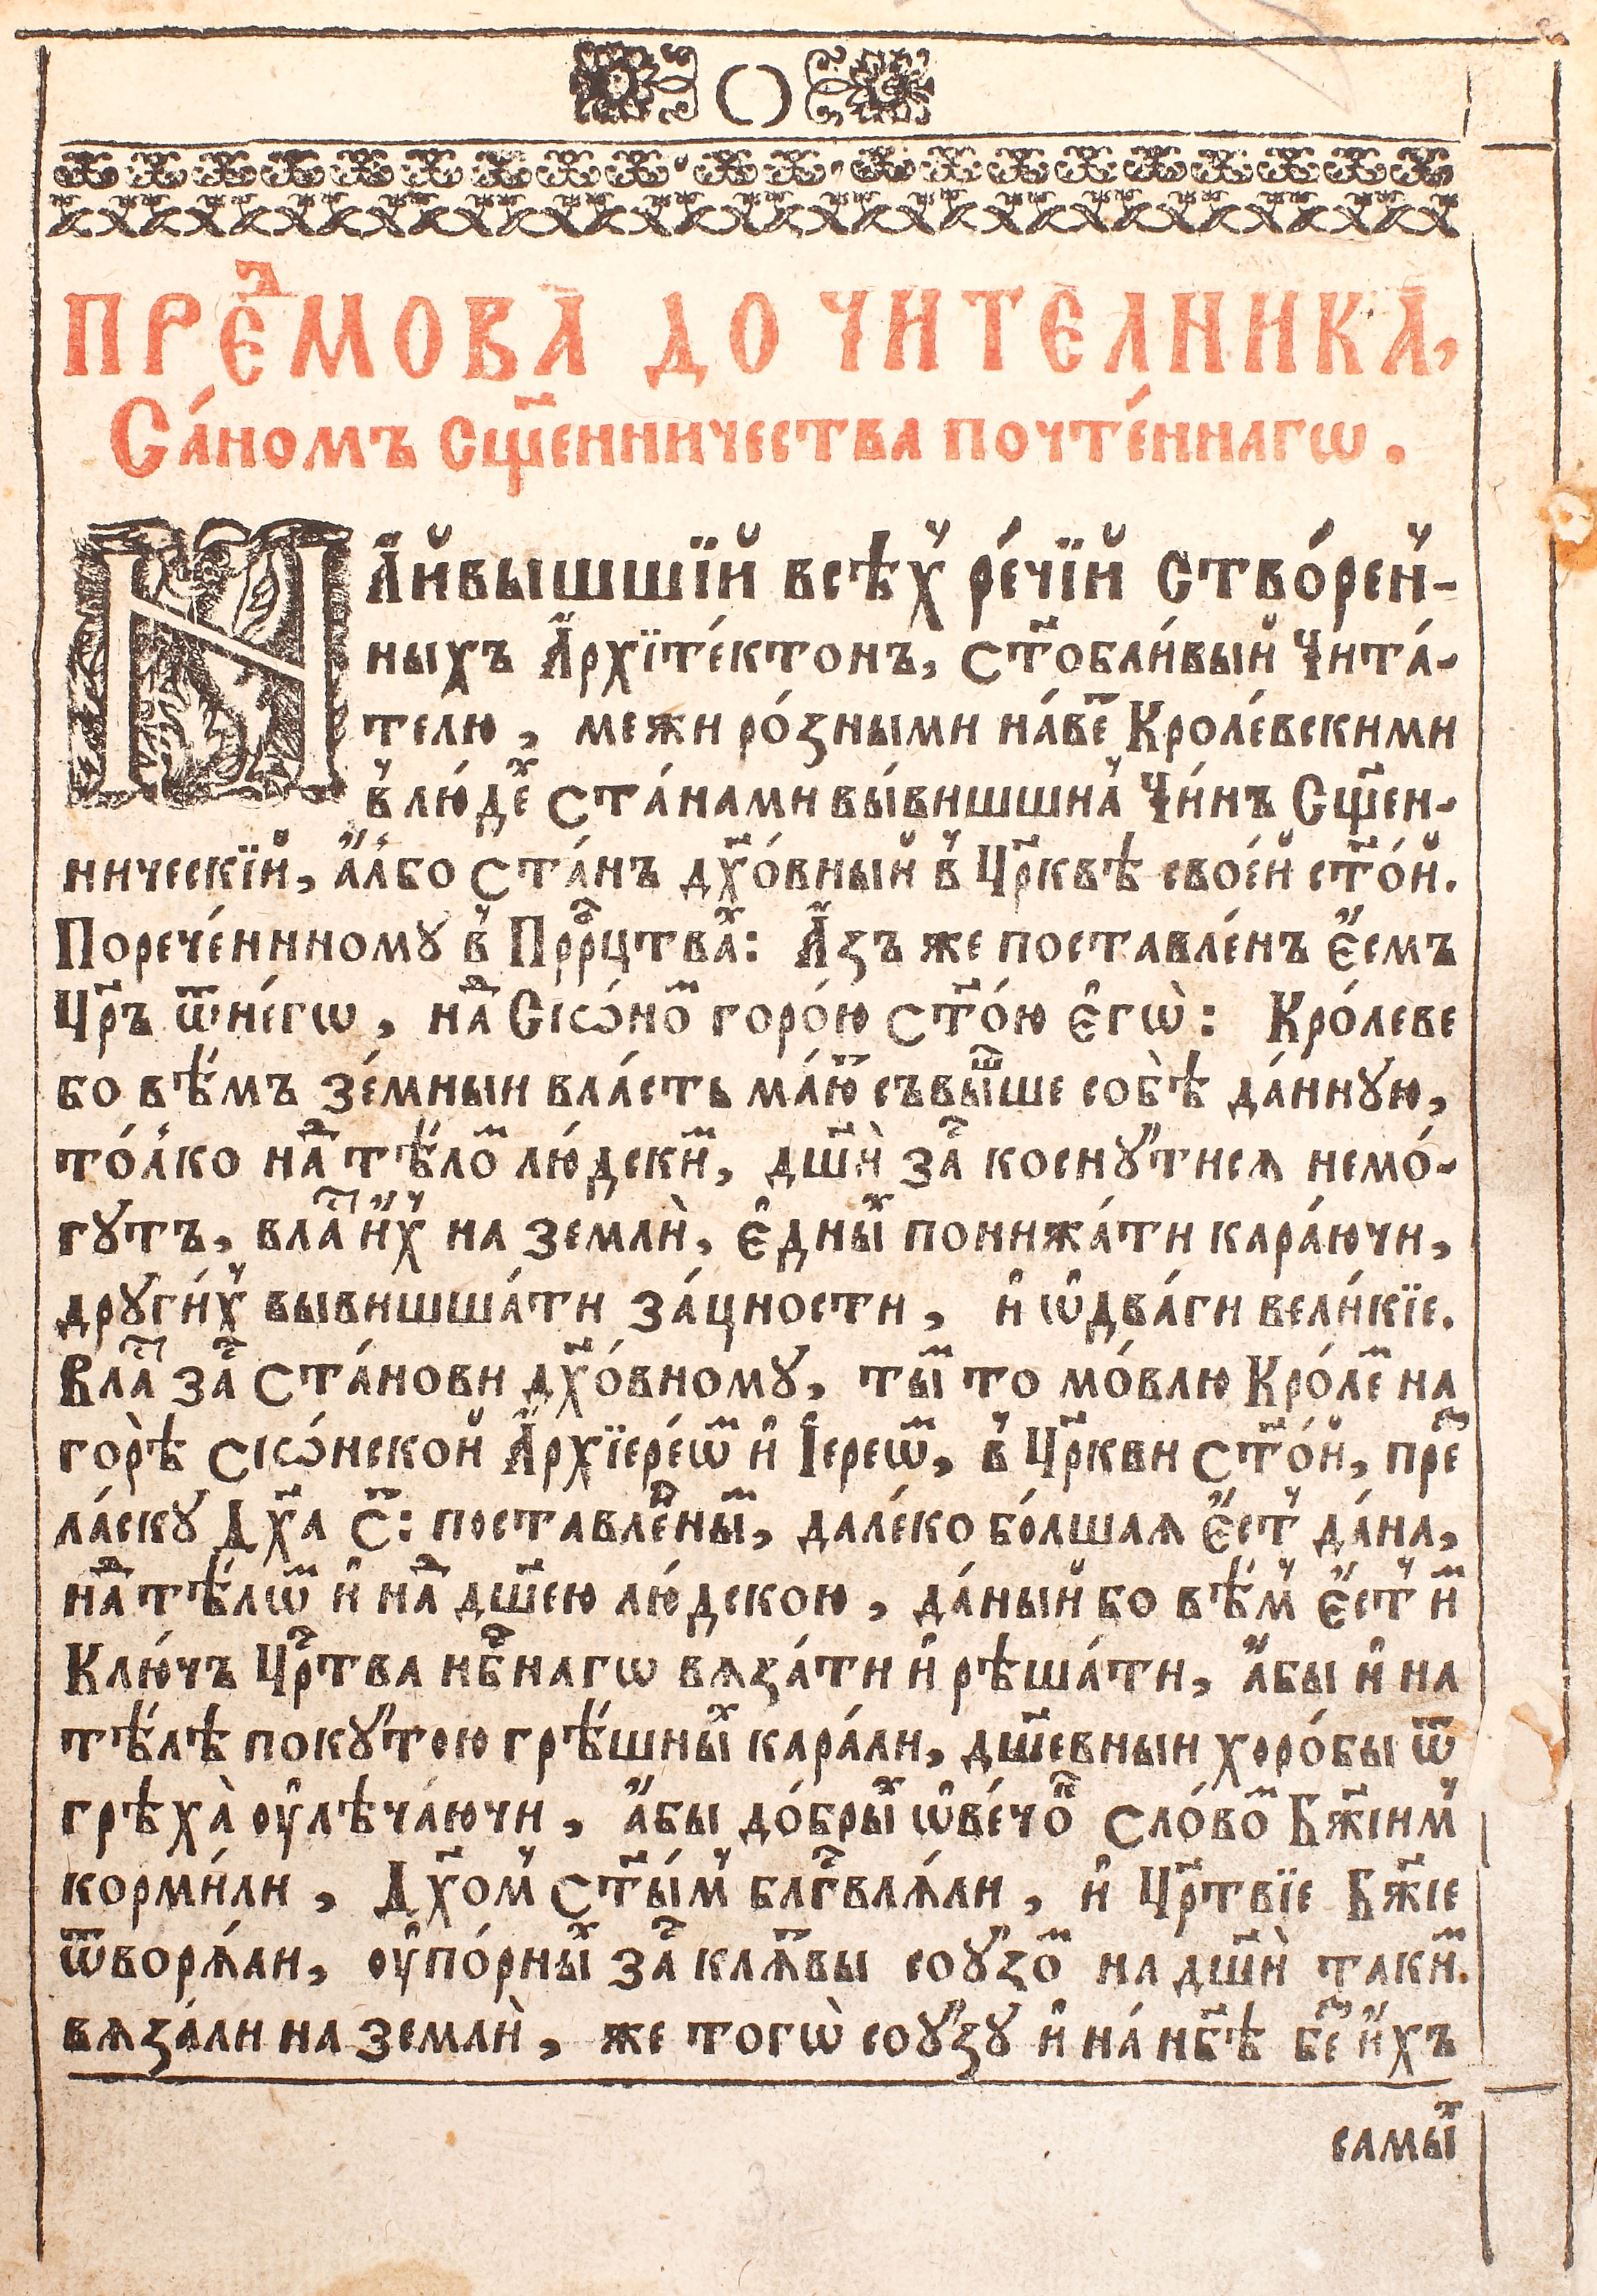 ПРЕⷣМОВА ДО ЧИТЕЛНИКА,
Са́номъ Сщ҃енничества почте́ннагѡ.
НА҆йвышшїй всѣхъ ре́чїй ство́рен-
ныхъ А҆рхїте́ктонъ, ст҃обли́вый Чита́-
телю, межи ро́зными на́веⷮ Кроле́вскими
в̾ лю́деⷯ ста́нами вы́вишшилъ Чи́нъ Сщ҃ен-
ническїй, а҆́лбо ста́нъ дх҃о́вный в̾ Цр҃квѣ свое́й ст҃о́й.
Порече́ннному в̾ Прⷪ҇рцтваⷯ: А҆́зъ же поставле́нъ є҆́смъ
Цр҃ъ ѿне́гѡ, наⷣ Сіѡ́ноⷨ горо́ю ст҃о́ю є҆гѡ̀: Кро́леве
бо вѣ́мъ зе́мныи вла́сть ма́юⷮ съвы́ше собѣ̀ да́нную,
то́лко наⷣ тѣ́лоⷨ лю́дскиⷨ, дш҃ѝ заⷭ҇ коснꙋ́тися немо́-
гꙋтъ, влаⷭ҇ти́ и҆́хъ на землѝ, є҆дныⷯ понижа́ти кара́ючи,
дрꙋги́хъ вывишша́ти за́цности, и҆ ѡ҆два́ги вели́кїе.
Влаⷭ҇ть заⷭ҇ ста́нови дх҃о́вномꙋ, тыⷨ то мо́влю Кро́леⷨ на
горѣ̀ сіѡ́нской А҆рхїере́ѡⷨ и҆ І҆ере́ѡⷨ, в̾ Цр҃кви ст҃о́й, преⷥ
ла́скꙋ Дх҃а С҃: поставле́ныⷨ, дале́ко бо́лшая є҆́стъ да́на,
наⷣ тѣ́лѡⷨ и҆ наⷣ дш҃ею лю́дскою, да́ный бо вѣ́мъ є҆́стъ иⷨ
Клю́чъ Црⷭ҇тва нбⷭ҇нагѡ вяза́ти и҆ рѣша́ти, а҆́бы и҆ на
тѣ́лѣ покꙋ́тою грѣ́шныⷯ кара́ли, дш҃евныи хоро́бы ѿ
грѣха̀ оу҆лѣча́ючи, а҆́бы до́брыⷯ ѡ҆ве́чоⷦ сло́воⷨ Бж҃іимъ
корми́ли, Дх҃омъ ст҃ы́мъ блгⷭ҇вля́ли, и҆ Црⷭ҇твїе Бж҃іе
ѿворя́ли, оу҆по́рныⷯ заⷭ҇ кля́твы соу́зоⷨ на дш҃ѝ такиⷨ.
вяза́ли на землѝ, же тогѡ̀ соу́зꙋ и҆ на́ нб҃ѣ беⷥ и҆́хъ
самыⷯ